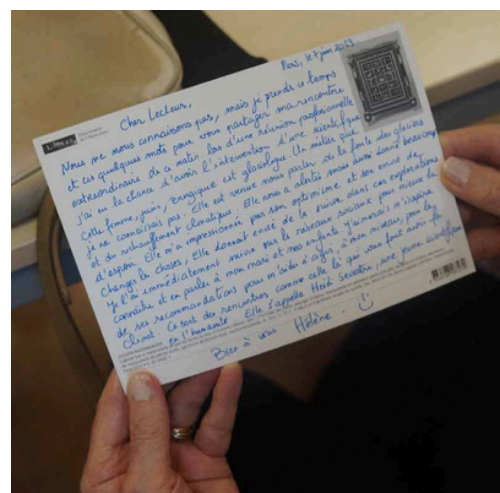 Paris, le 7 juin 2023
Cher Lecteur,
Nous ne nous connaissons pas, mais je prends ce temps
et ces quelques mots pour vous partager ma rencontre
extraordinaire de ce matin. Lors d'une réunion professionnelle
j'ai eu la chance d'avoir l'intervention d'une scientifique
je ne connaissais pas. Elle
Cette femme, suisse, énergique est glaciologue. Un métier que
est venue nous parler de la fonte des glaciers
et du réchauffement climatique. Elle nous a alertés mais aussi donné beaucoup
d'espoir. Elle m'a impressionnée par son optimisme et son envie de
changer les choses. Elle donnait envie de la suivre dans ses explorations
je l'ai immédiatement suivie sur les réseaux sociaux pour mieux la
connaître et en parler à mon mari et nos enfants. J'aimerais m'inspirer
de ses recommandations pour m'aider à agir, à mon niveau, pour le
climat. Ce sont des rencontres comme celle là qui vous font avoir foi
en l'humanité. Elle s'appelle Heidi Sevestre, une jeune scientifique
Bien à vous Hélène. :)